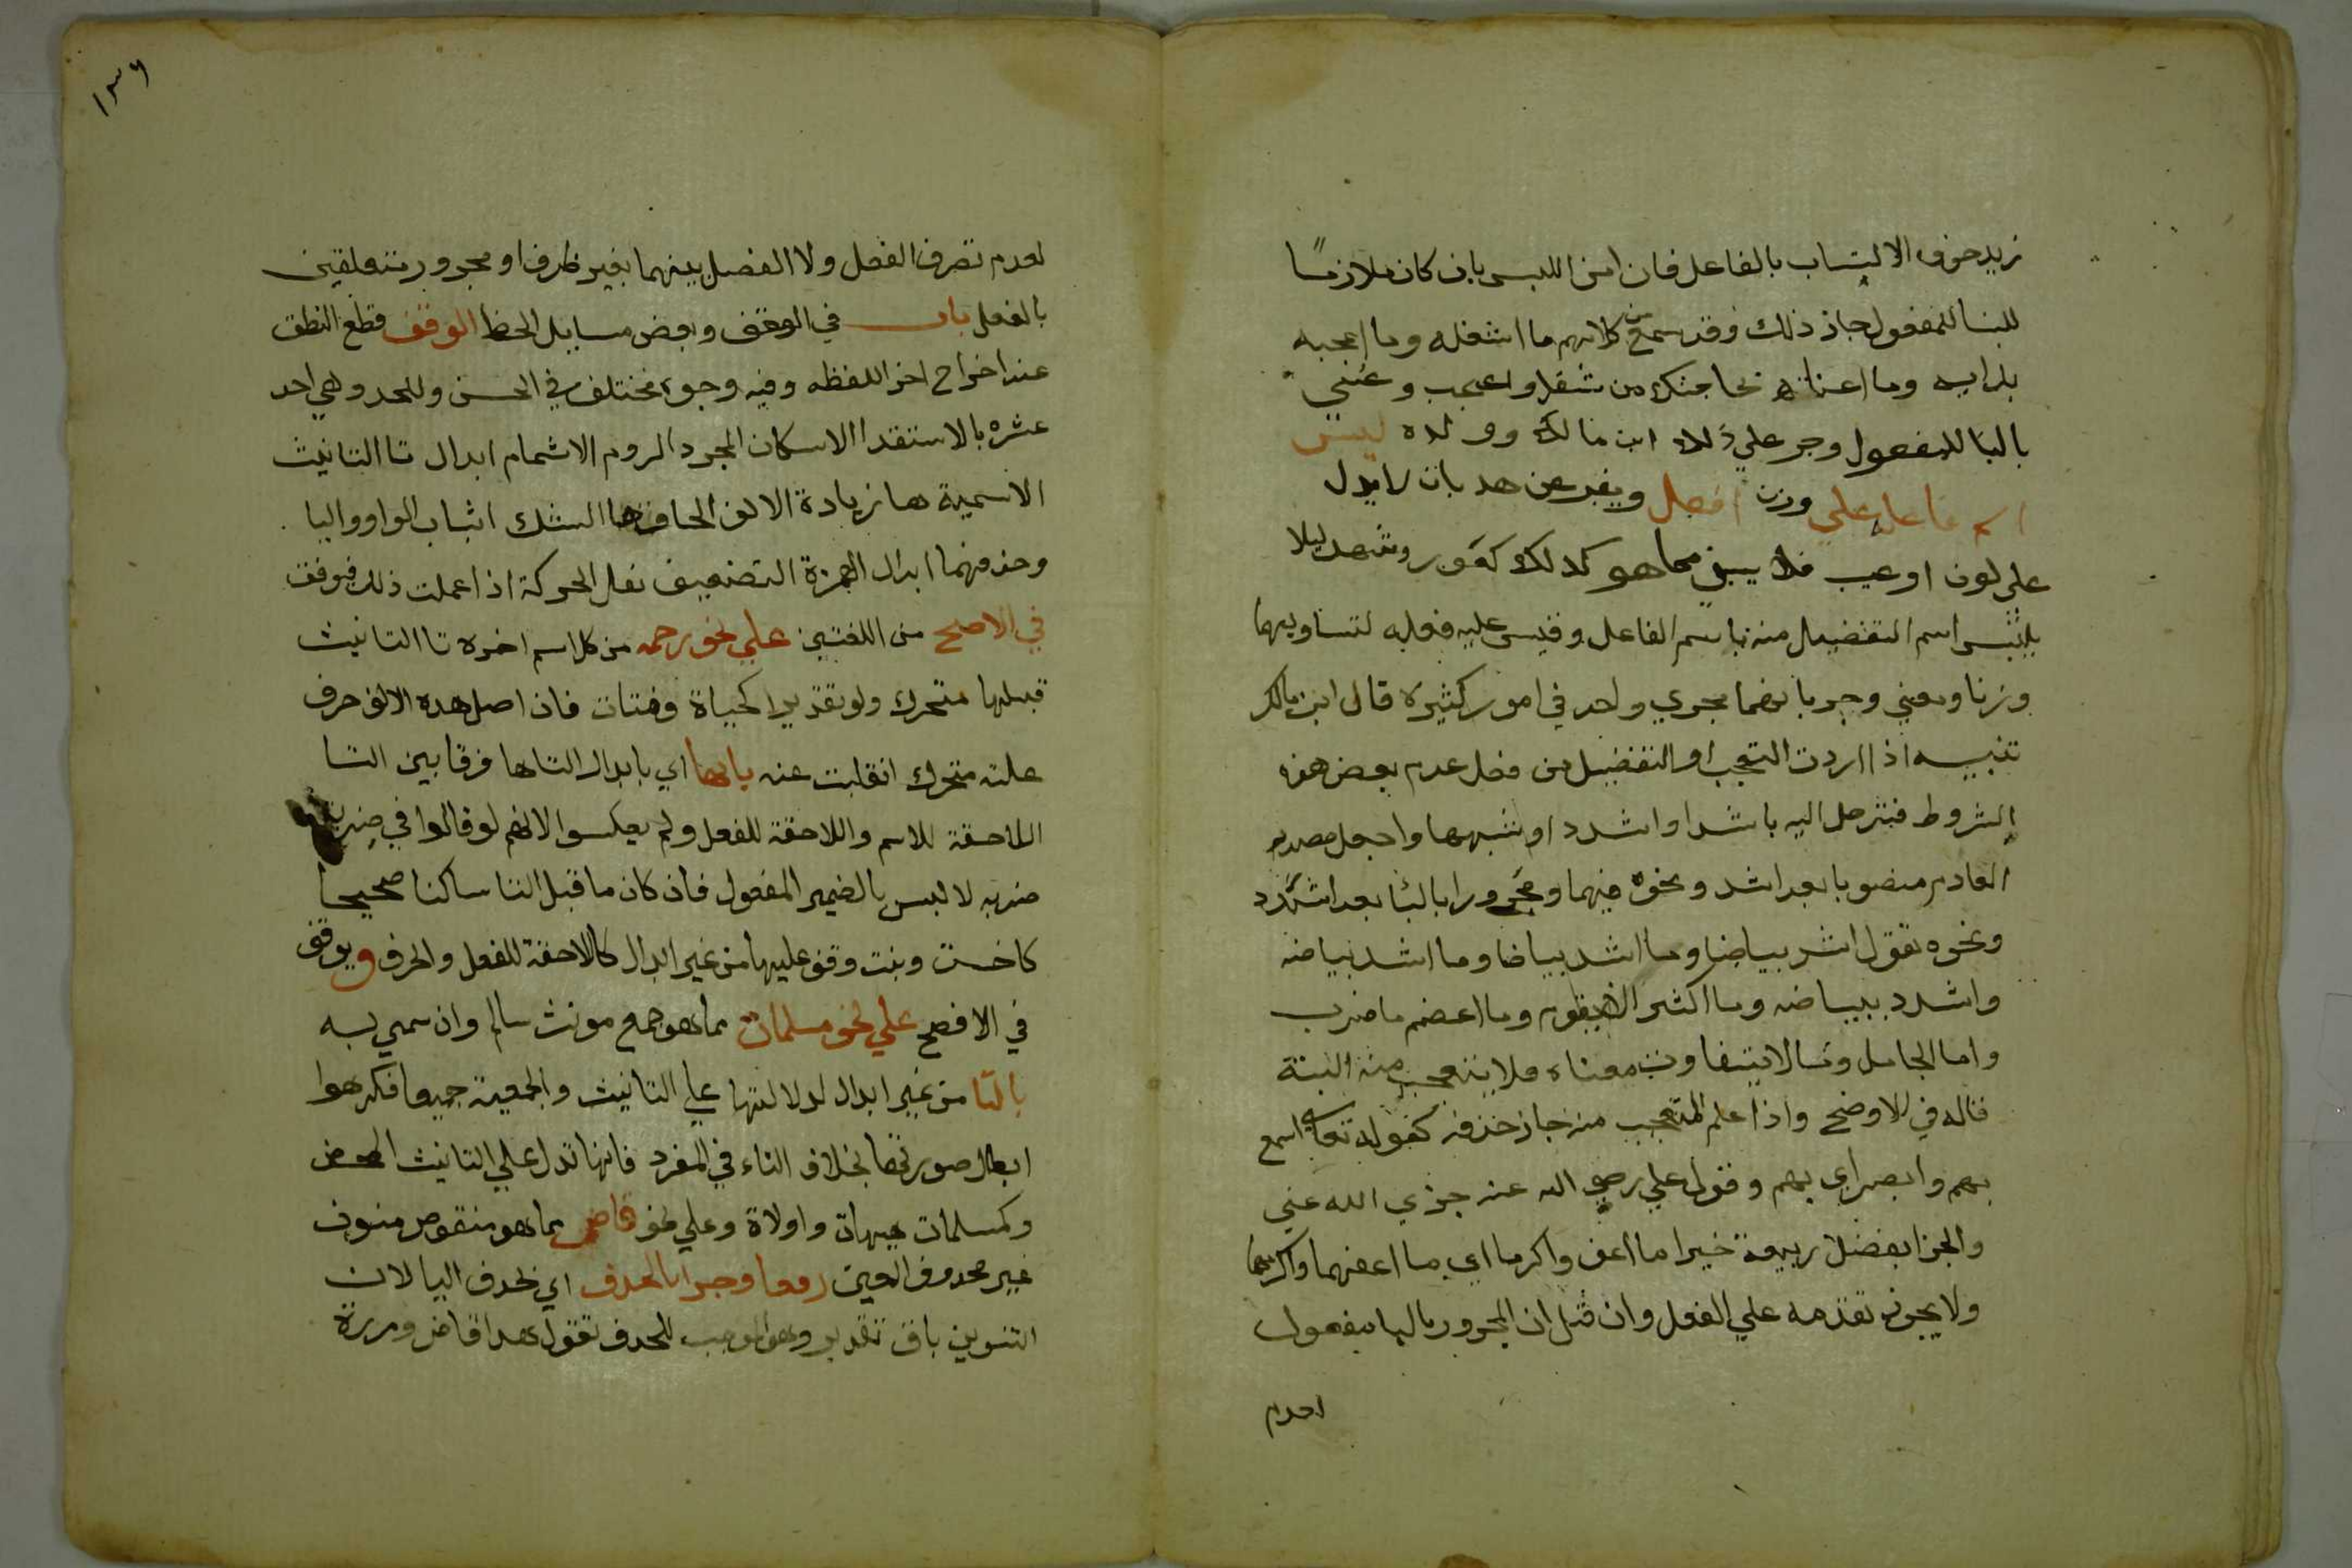 زيد خوف الالتباس بالفاعل فان امن اللبس بان كان ملازما
للبنا للمفعول جاز ذلك وقد سمع من كلامهم ما اشغله وما اعجبه
برايه وما اعناه بحاجتك من شغل واعجب وعني
بالبنا للمفعول وجر علي ذلك ابن مالك وولده ليس
اسم فاعله علي وزن افعل ويعبر عن هد بان لا يدل
علي لون او عيب فلا يبني مما هو كدلك كعور وشهد ليلا
يلتبس اسم التفضيل منه باسم الفاعل وقيس عليه فعله لتساويهما
وزنا ومعني وجريانهما مجري واحد في امور كثيرة قال ابن مالك
تنبيه اذا اردت التعجب او التفضيل من فعل عدم بعض هذه
الشروط فتوصل اليه باشد او اشدد او شبهها واجعل مصدر
العادم منصوبا بعد اشد ونحوه فيهما ومجرورا بالبا بعد اشدد
ونحوه تقول اشد بياضا وما اشد بياضا وما اشد بياضه
واشدد ببياضه وما اكثر الا يقوم وما اعضم ما ضرب
واما الجامد وما لا يتفاوت معناه فلا يتعجب منه البتة
قاله في الاوضح واذا علم المتعجب منه جاز حذفه كقوله تعالي اسمع
بهم وابصر اي بهم وقول علي رضي الله عنه جزي الله عني
والجزا بفضله ربيعة خيرا ما اعف واكرما اي ما اعفهما واكرمهما
ولا يجوز تقدمه علي الفعل وان قيل ان المجرور بالبا مفعول
لعدم
١٣٦
لعدم تصرف الفعل ولا الفصل بينهما بغير ظرف او مجرور متعلقين
بالفعل باب في الوقف وبعض مسايل الخط الوقف قطع النطق
عند اخراج اخر اللفظه وفيه وجوه مختلف في الحسن والمحد وهي احد
عشره بالاستقرا الاسكان المجرد الروم الاشمام ابدال تا التانيث
الاسمية ها زيادة الالف الحاق ها السكت اثبات الواو واليا
وحذفهما ابدال الهمزة التضعيف نقل الحركة اذا عملت ذلك فيوقف
في الاصح من اللغتين علي نحو رحمه من كل اسم اخره تا التانيث
قبلها متحرك ولو تقديرا كحياة وفتات فان اصل هده الالف حرف
علته متحرك انقلبت عنه بالها اي بابدال التا ها فرقا بين التا
اللاحقة للاسم واللاحقة للفعل ولم يعكسوا لانهم لو قالوا في ضربت
ضربه لالبس بالضمير المفعول فان كان ما قبل التا ساكنا صحيحا
كاخت وبنت وقف عليها من غير ابدال كالاحقة للفعل والحرف ويوقف
في الافصح علي نحو مسلمات مما هو جمع مونث سالم وان سمي به
بالتا من غير ابدال لدلالتها علي التانيث والجمعية جميعا فكرهوا
ابطال صورتها بخلاف التاء في المفرد فانها تدل علي التانيث المحض
وكمسلمات هيهات واولاة وعلي نحو قاض مما هو منقوص منون
غير محدوف العين رفعا وجرا بالحدف اي بحدف اليا لان
التنوين باق تقديرا وهو الموجب للحدف تقول هدا قاض ومررة